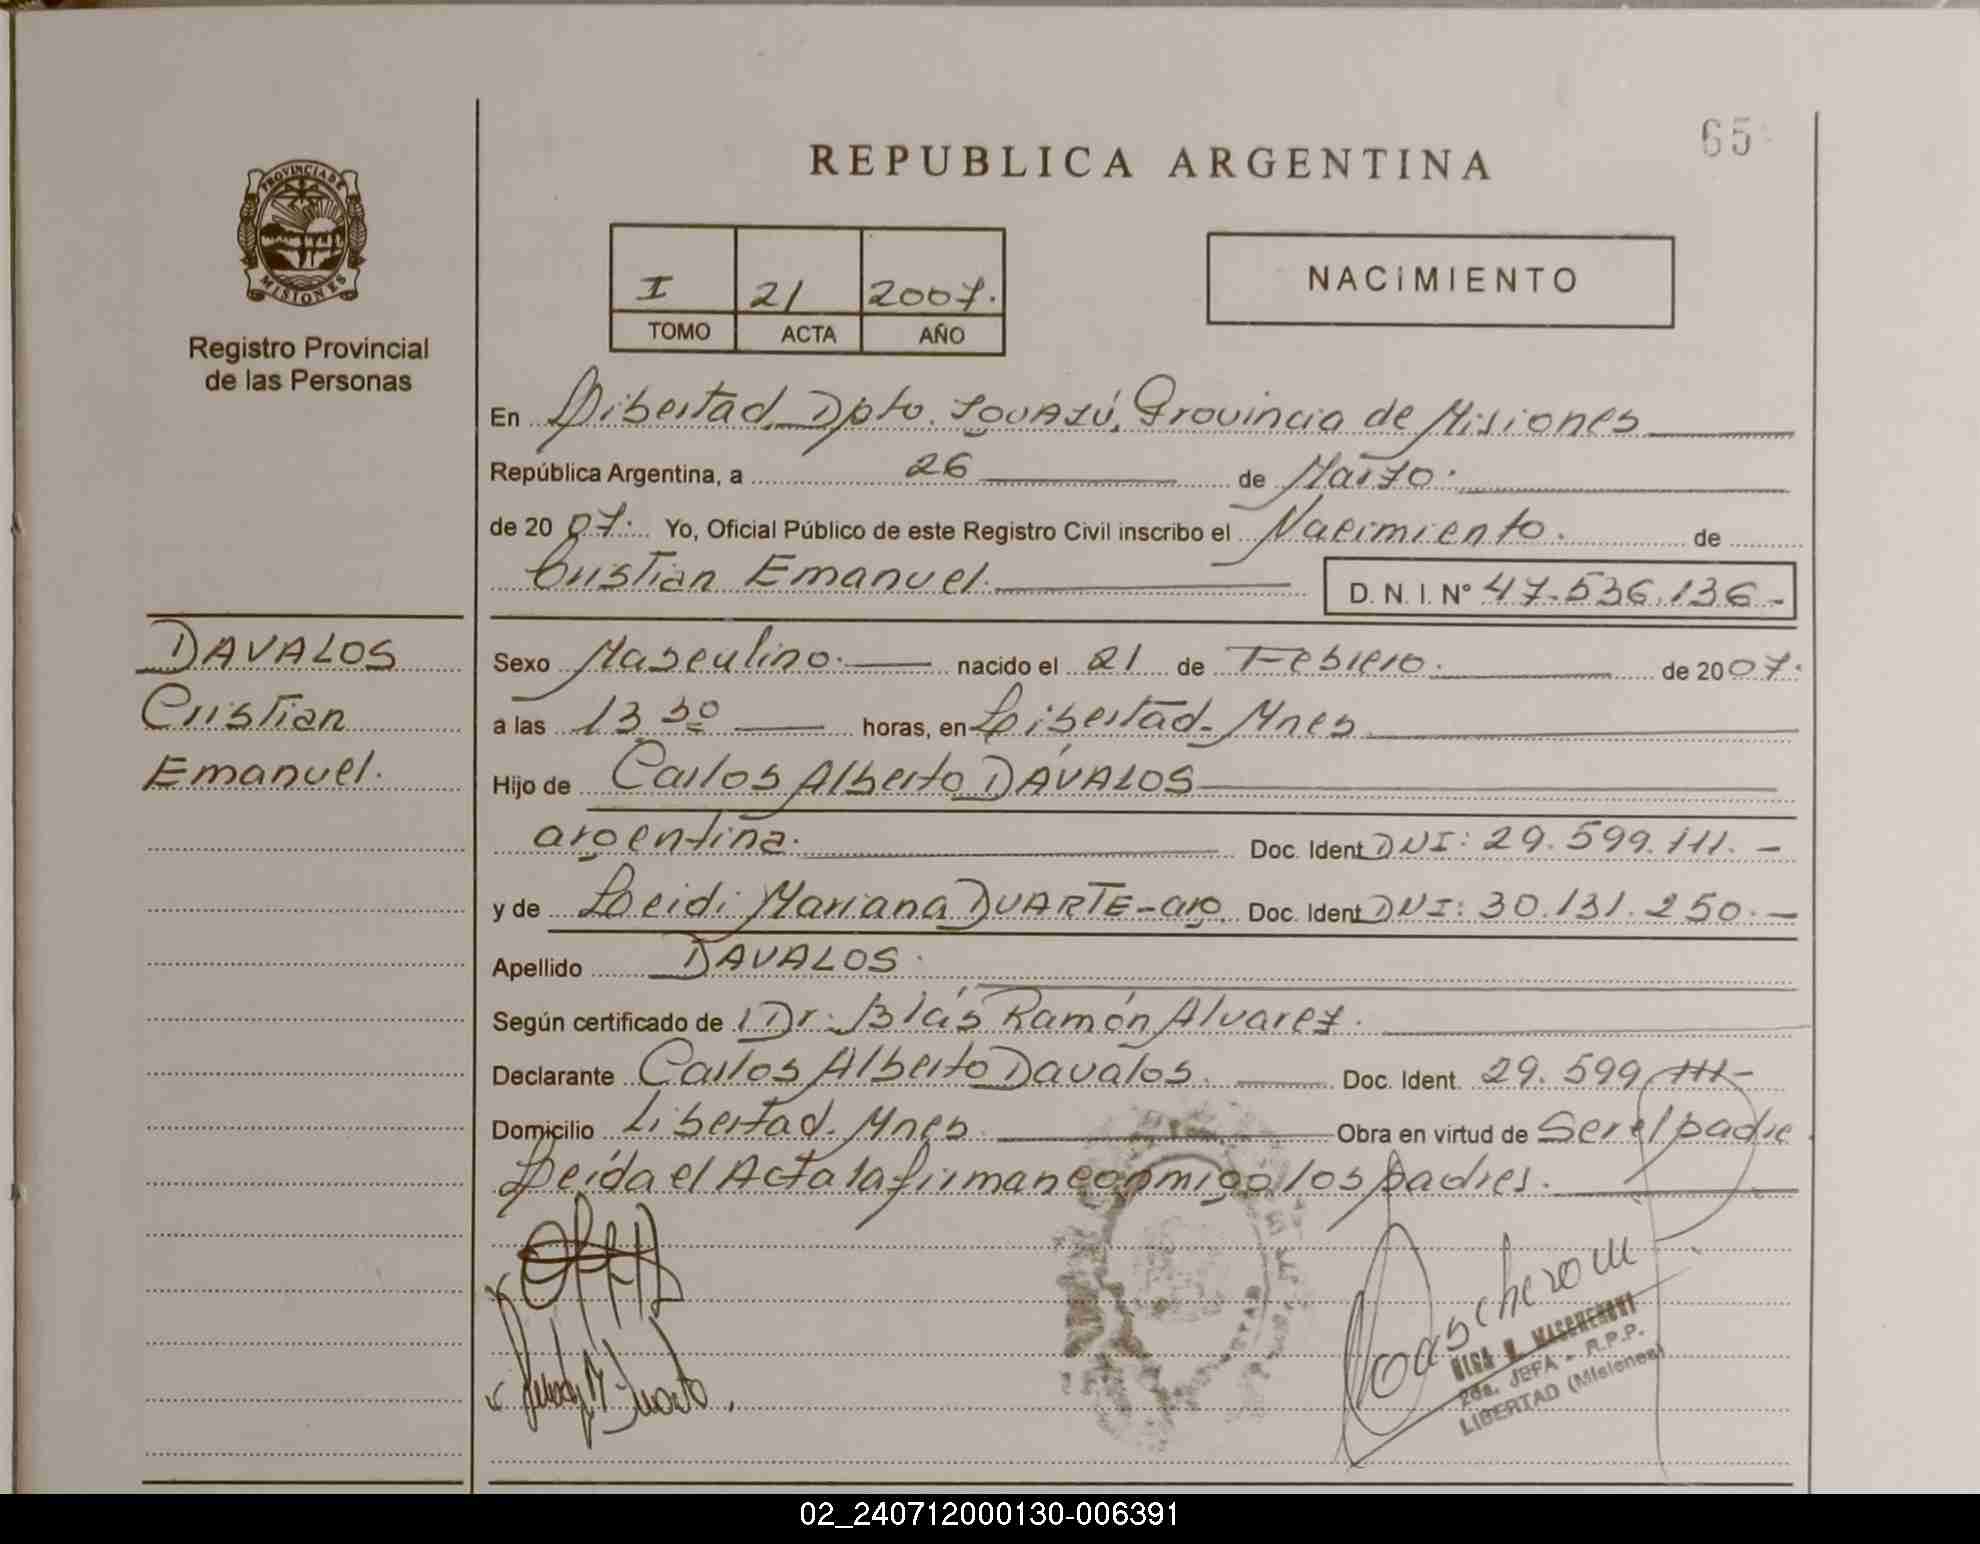 65
REPUBLICA ARGENTINA
PROVINCIA DE
MISIONES
Registro Provincial
de las Personas
I 21 2007.
TOMO ACTA AÑO
NACIMIENTO
En Libertad, Dpto. IGUAZÚ, Provincia de Misiones
República Argentina, a 26 de Marzo.
de 2007. Yo, Oficial Público de este Registro Civil inscribo el Nacimiento. de
Cristian Emanuel. D. N. I. Nº 47.536.136-
DAVALOS
Cristian
Emanuel.
Sexo Masculino. nacido el 21 de Febrero. de 2007.
a las 13 30 horas, en Libertad- Mnes
Hijo de Carlos Alberto DÁVALOS
argentina. Doc. Ident DNI: 29.599.111. -
y de Leidi Mariana DUARTE-arg. Doc. Ident DNI: 30.131.250. -
Apellido DAVALOS.
Según certificado de Dr. Blás Ramón Alvarez.
Declarante Carlos Alberto Davalos. Doc. Ident. 29.599.111-
Domicilio Libertad. Mnes Obra en virtud de Ser el padre.
Leída el Acta la firman conmigo los padres.
2da. JEFA - R.P.P.
LIBERTAD (Misiones)
02_240712000130-006391